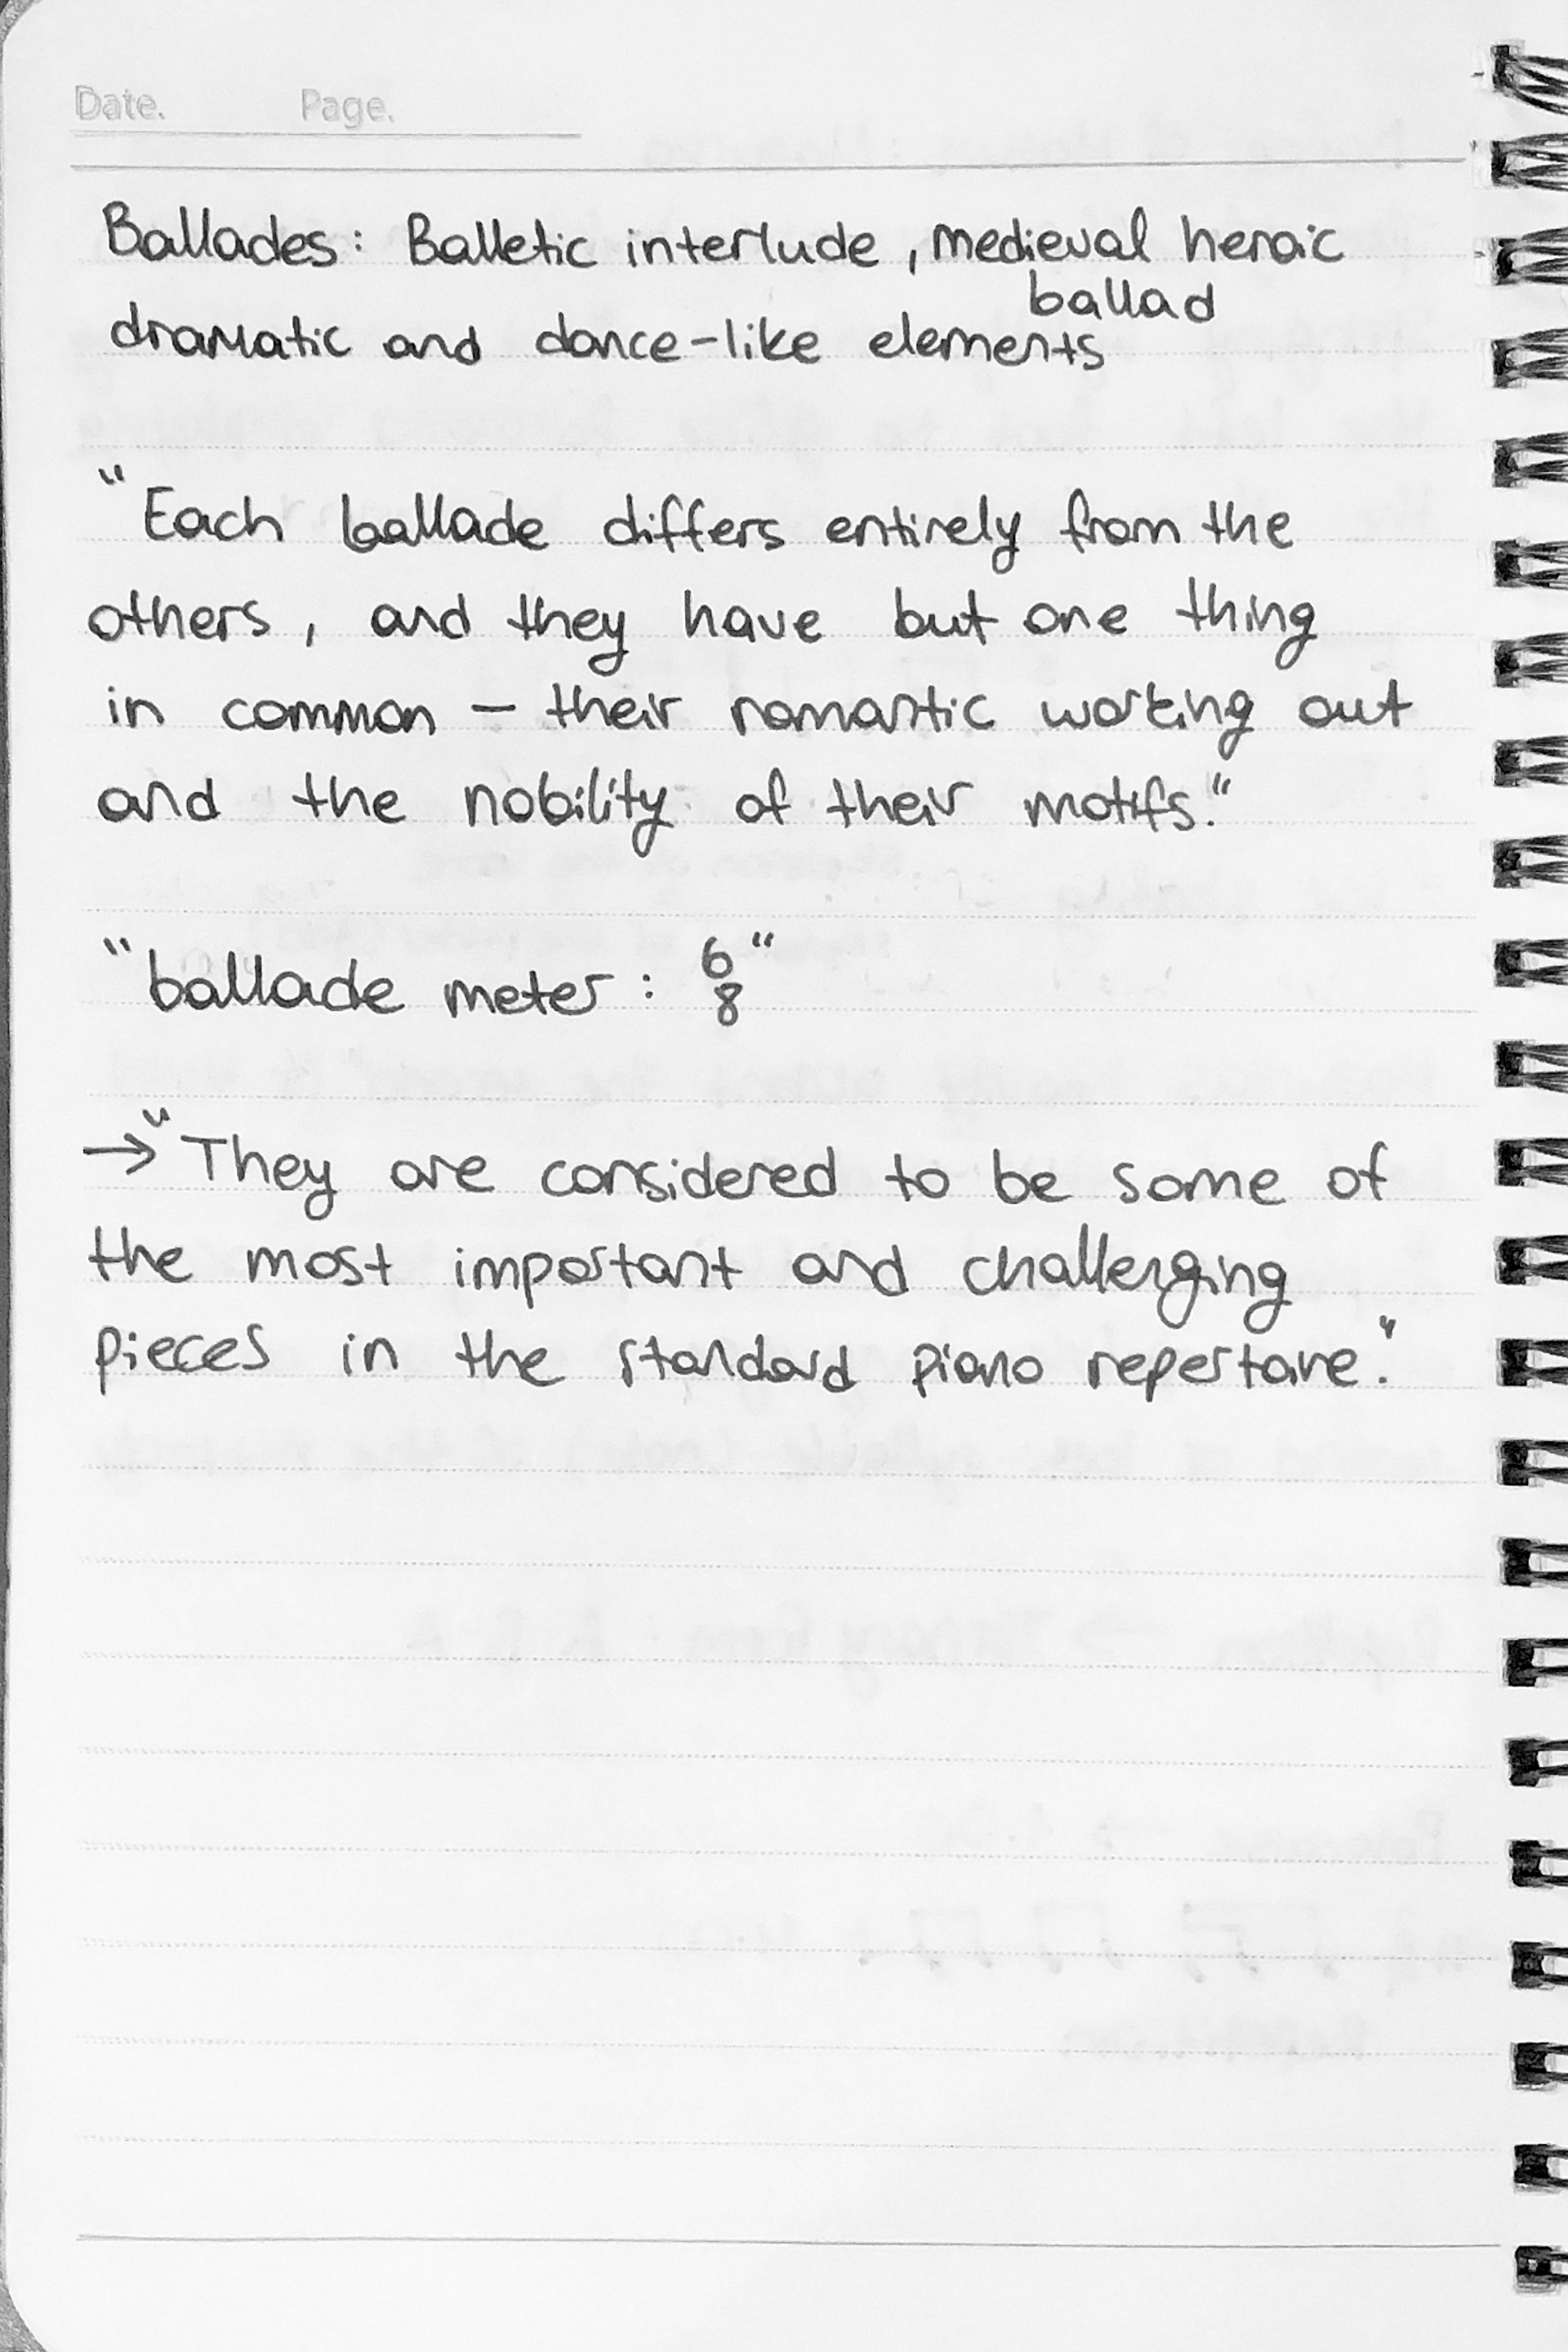 Date. Page.
Ballades: Balletic interlude, medieval heroic
ballad
dramatic and dance-like elements
"Each ballade differs entirely from the
others, and they have but one thing
in common – their romantic working out
and the nobility of their motifs."
"ballade meter: 6/8"
→ "They are considered to be some of
the most important and challenging
pieces in the standard piano repertoire."